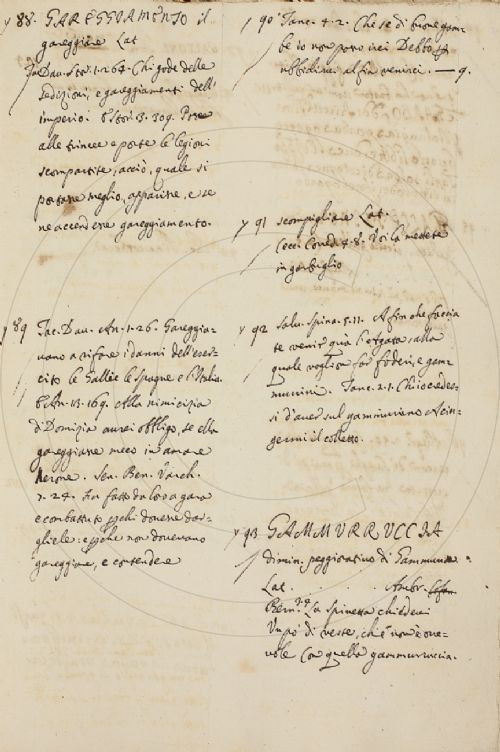 y 88. GAREGGIAMENTO il
gareggiare Lat.
Tac. Dav. Stor. 1. 264. Chi gode delle
sedizioni, e gareggiamenti dell'
imperio. E Stor. 3. 309. Prese
alle trincee e porte le legioni
scompartite, acciò, quale si
portasse meglio, apparisse, e se
ne accendesse gareggiamento.
y 89 Tac. Dav. An. 1. 26. Gareggia-
vano a rifare i danni dell'eser-
cito le Gallie le Spagne e l'Italia.
E An. 13. 169. Alla nimicizia
di Domizia avrei obbligo, se ella
gareggiasse meco in amare
Nerone. Sen. Ben. Varch.
7. 24. Fu fatto da loro a gara
e combattuto
gliele: e
gareggiare, e contendere
y 90 Tanc. 4. 2. Che se di buone gam-
be io non posso irci Debbo
ubbidirci al fin venirci. — 9.
y 91 scompigliare Lat.
Cecc. Corred. 4. 8. Voi la mettete
in garbuglio
y 92 Salv. Spina. 5. 11. A fin che faccia
te venir qua l'Orgata, alla
quale voglion for foderi, e gam-
murrini. Tanc. 2. 1. Ch'io credes-
si d'aver sul gammurrino A cin-
germi il colletto.
y 93 GAMMURRUCCIA
dimin. peggiorativo di Gammurra.
Lat. Ambr.
Bern. 3. 9. La Spinetta chiedervi
Un po' di veste, ch'è non è ore-
vole Con quella gammurruccia.